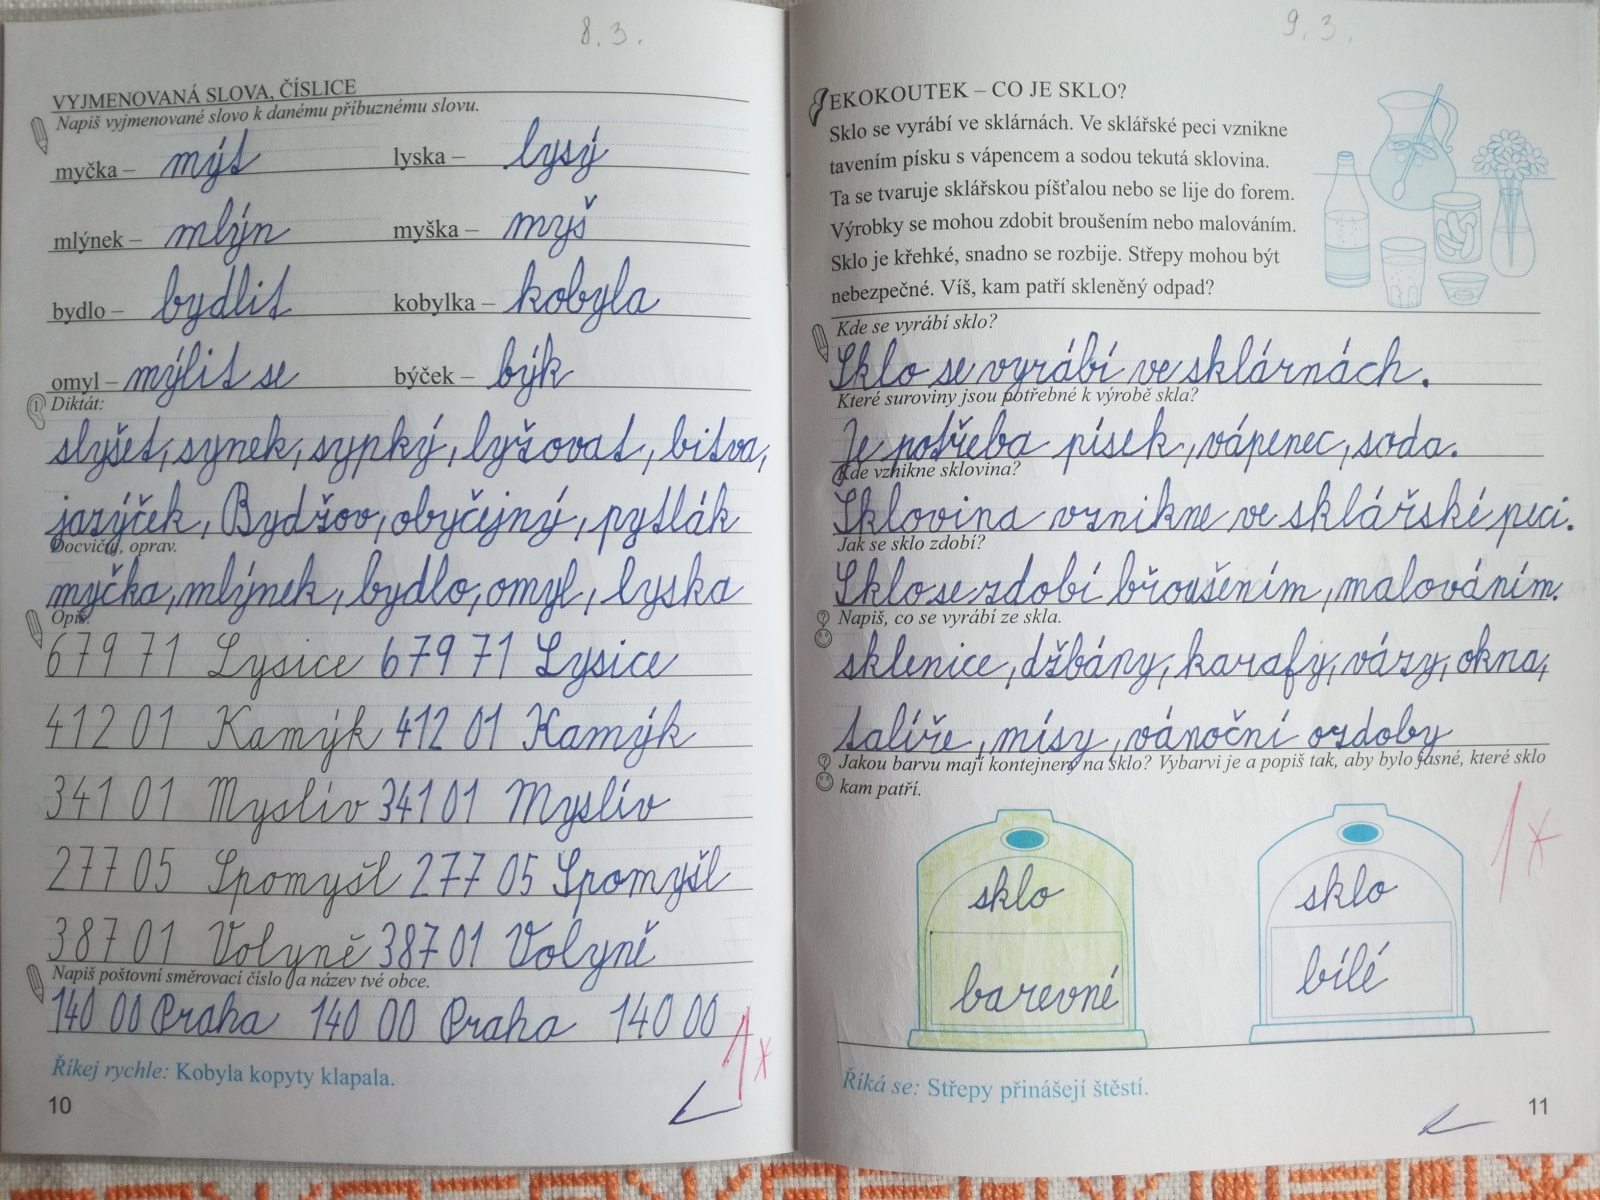 8. 3.
VYJMENOVANÁ SLOVA, ČÍSLICE
Napiš vyjmenované slovo k danému příbuznému slovu.
myčka – mýt lyska – lysý
mlýnek – mlýn myška – myš
bydlo – bydlit kobylka – kobyla
omyl – mýlit se býček – býk
Diktát:
slyšet, synek, sypký, lyžovat, bitva,
jazýček, Bydžov, obyčejný, pytlák
Docvičuj, oprav.
myčka, mlýnek, bydlo, omyl, lyska
Opiš.
679 71 Lysice 679 71 Lysice
412 01 Kamýk 412 01 Kamýk
341 01 Myslív 341 01 Myslív
277 05 Spomyšl 277 05 Spomyšl
387 01 Volyně 387 01 Volyně
Napiš poštovní směrovací číslo a název tvé obce.
140 00 Praha 140 00 Praha 140 00
1*
Říkej rychle: Kobyla kopyty klapala.
10
9. 3.
EKOKOUTEK – CO JE SKLO?
Sklo se vyrábí ve sklárnách. Ve sklářské peci vznikne
tavením písku s vápencem a sodou tekutá sklovina.
Ta se tvaruje sklářskou píšťalou nebo se lije do forem.
Výrobky se mohou zdobit broušením nebo malováním.
Sklo je křehké, snadno se rozbije. Střepy mohou být
nebezpečné. Víš, kam patří skleněný odpad?
Kde se vyrábí sklo?
Sklo se vyrábí ve sklárnách.
Které suroviny jsou potřebné k výrobě skla?
Je potřeba písek, vápenec, soda.
Kde vznikne sklovina?
Sklovina vznikne ve sklářské peci.
Jak se sklo zdobí?
Sklo se zdobí broušením, malováním.
Napiš, co se vyrábí ze skla.
sklenice, džbány, karafy, vázy, okna,
talíře, mísy, vánoční ozdoby
Jakou barvu mají kontejnery na sklo? Vybarvi je a popiš tak, aby bylo jasné, které sklo
kam patří.
sklo sklo
barevné bílé
1*
Říká se: Střepy přinášejí štěstí.
11